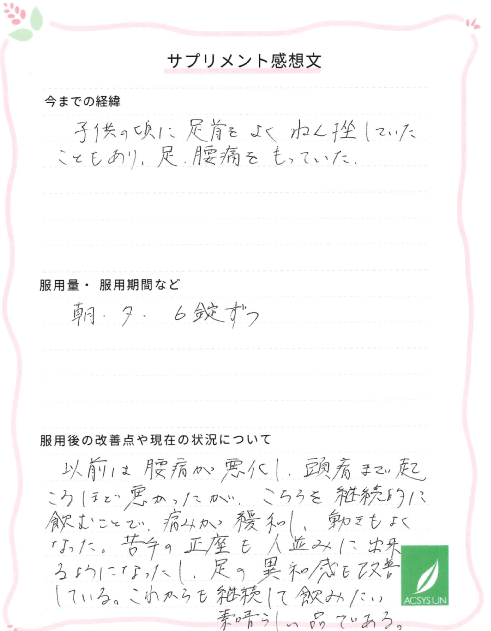 サプリメント感想文
今までの経緯
子供の頃に足首をよくねん挫していた
こともあり、足、腰痛をもっていた。
服用量・服用期間など
朝・夕・6錠ずつ
服用後の改善点や現在の状況について
以前は腰痛が悪化し、頭痛まで起
こるほど悪かったが、こちらを継続的に
飲むことで、痛みが緩和し、動きもよく
なった。苦手の正座も人並みに出来
るようになったし、足の異和感も改善
している。これからも継続して飲みたい
素晴らしい品である。
ACSYSUN